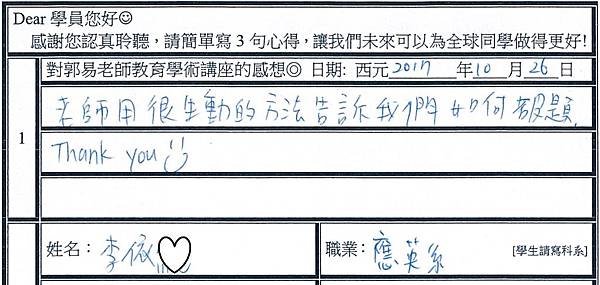 Dear 學員您好☺
感謝您認真聆聽，請簡單寫 3 句心得，讓我們未來可以為全球同學做得更好!
對郭易老師教育學術講座的感想◎ 日期: 西元 2017 年 10 月 26 日
1
老師用很生動的方法告訴我們如何題.
Thank you
姓名： 李依 職業： 應英系 [學生請寫科系]